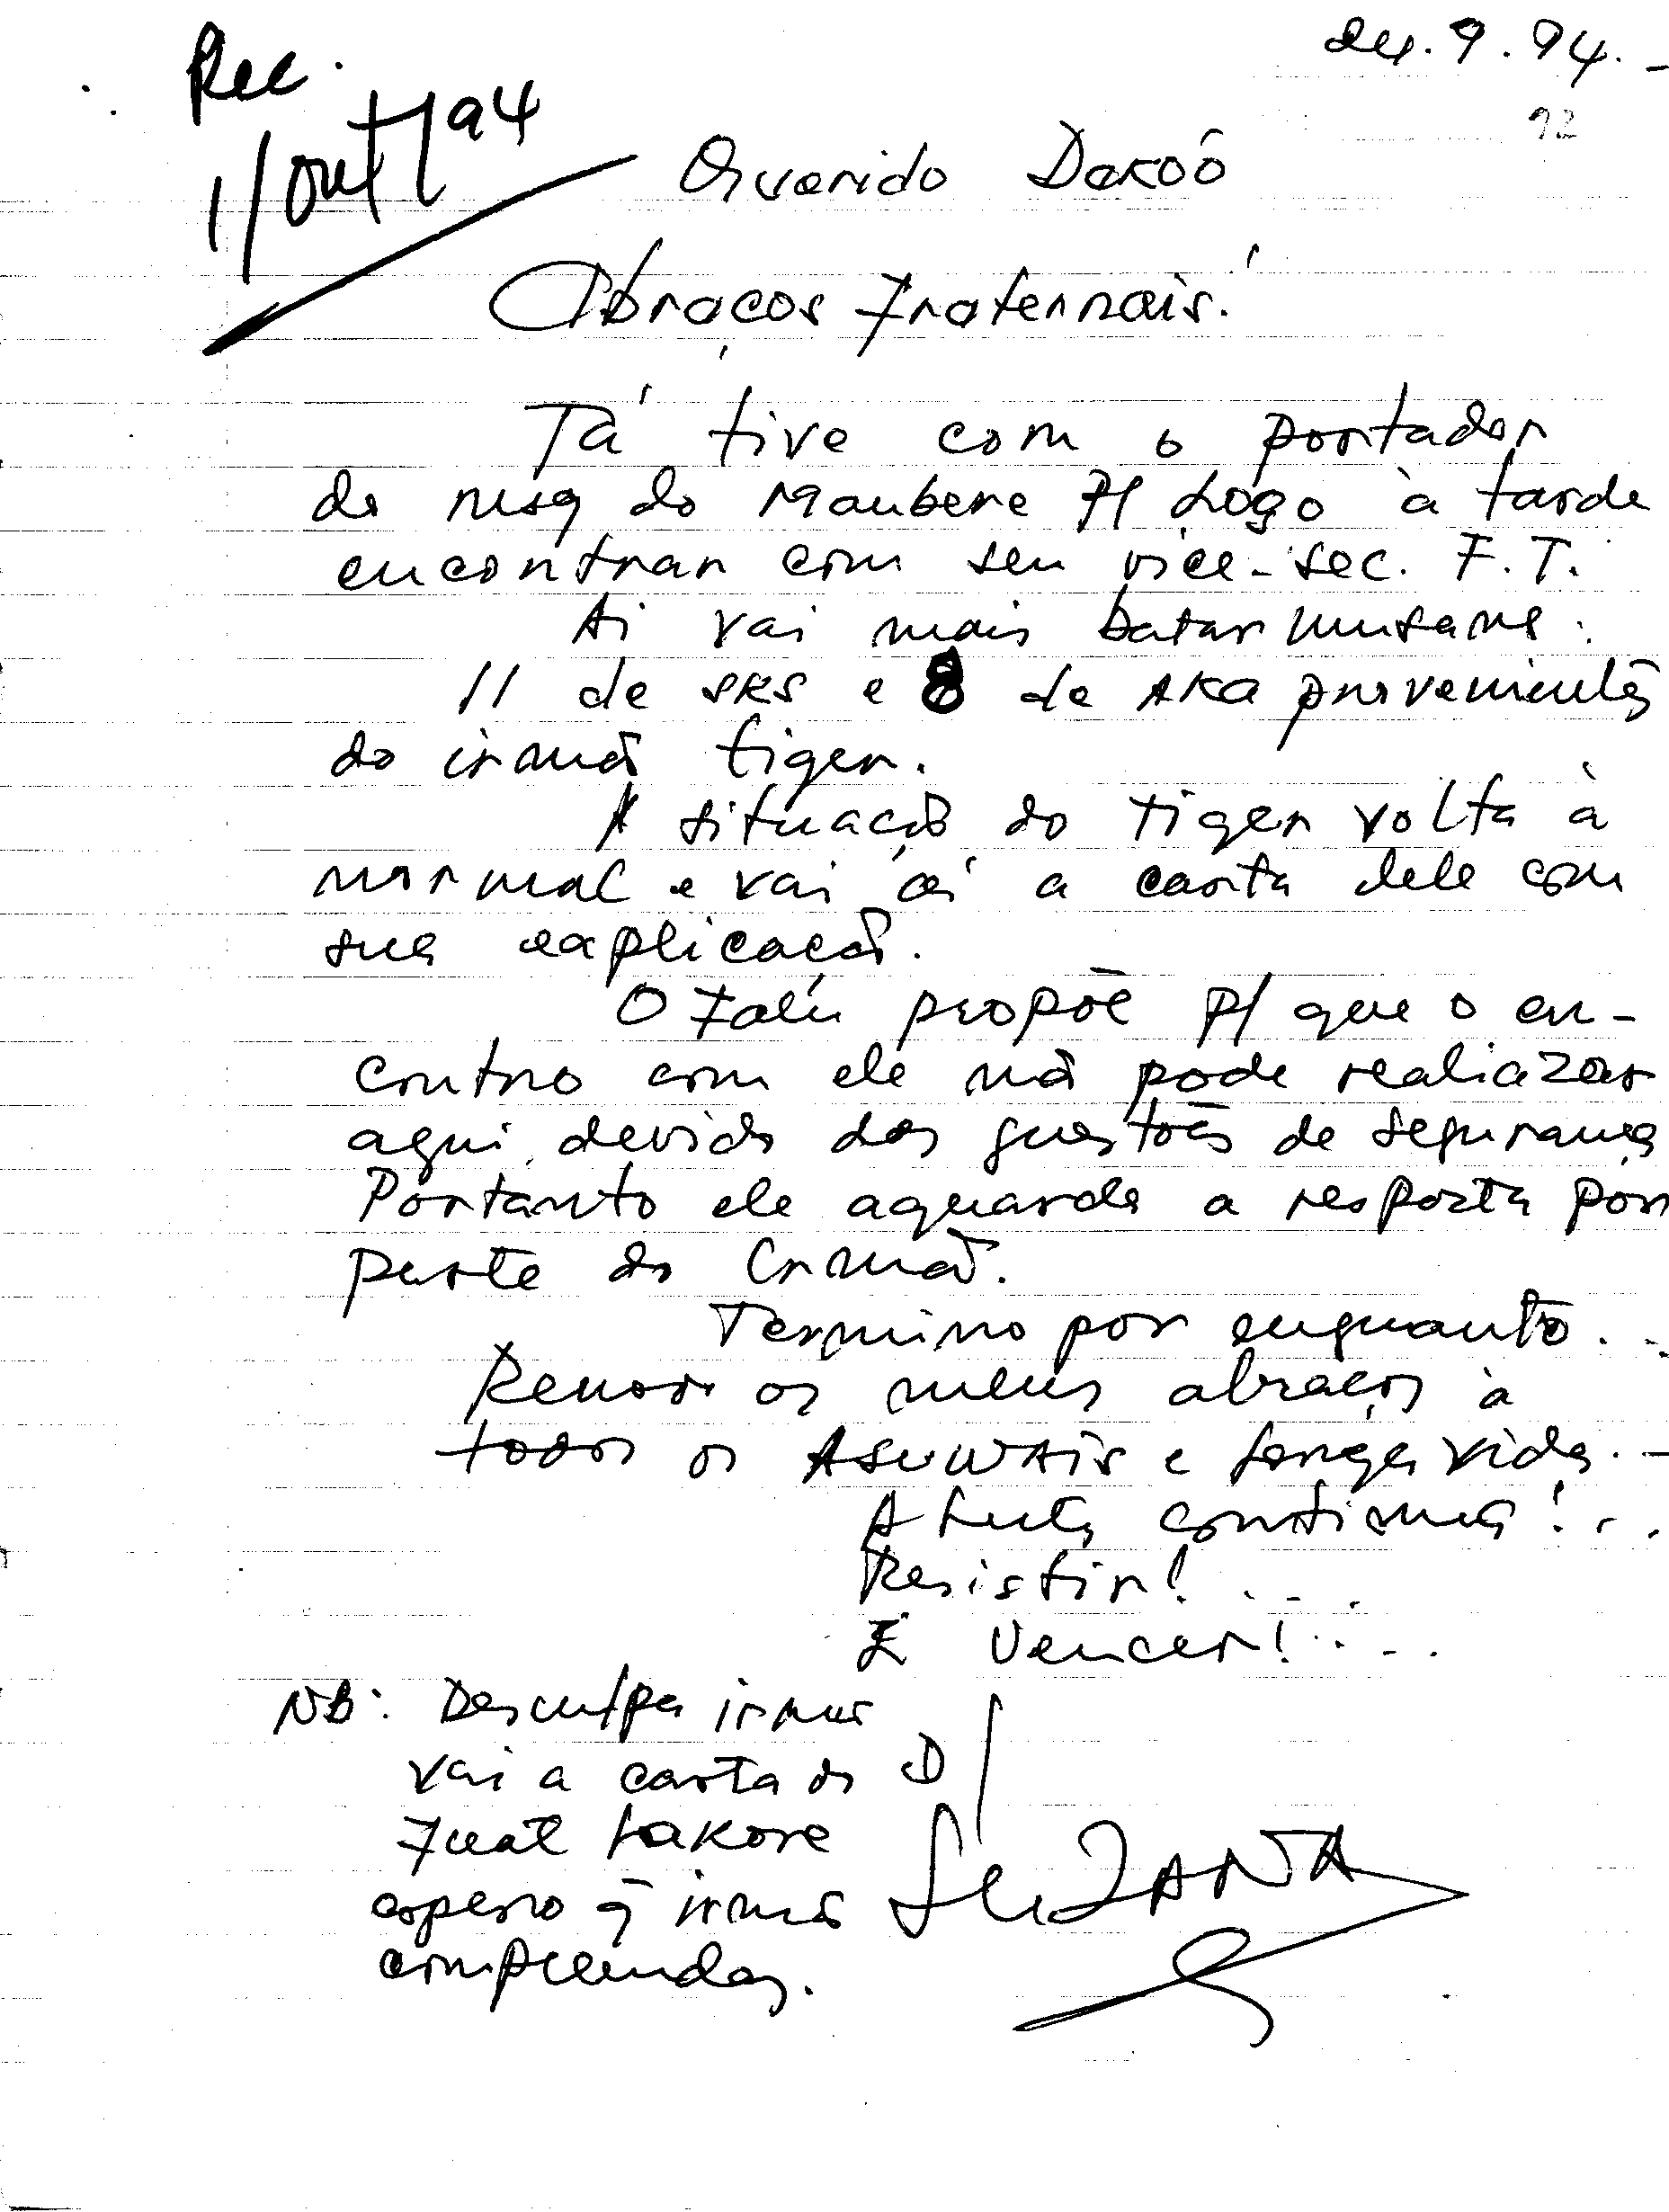 Rec.
1/out/94
24.9.94.-
92
Querido Dakoó
Abraços Fraternais!
Já tive com o portador
do msg do Maubere p/ Logo à tarde
encontrar com seu vice-sec. F.T.
Ai vai mais batar musane:
11 de SKS e 8 de AKA provenientes
do irmão tiger.
A situação do tiger volta à
normal e vai aí a carta dele com
sua explicação.
O Falu propõe p/ que o en-
contro com ele não pode realiazar
aqui, devido das questões de segurança
Portanto ele aguarda a resposta por
parte do Irmão.
Termino por enquanto...
Renovo os meus abraços à
todos os Asuwais e longa vida.-
A Luta continua!...
Resistir!...
E Vencer!...
NB: Desculpa irmão
vai a carta do D/
Fuat Lakore
espero q̃ irmão
compreenda.
SuZANA